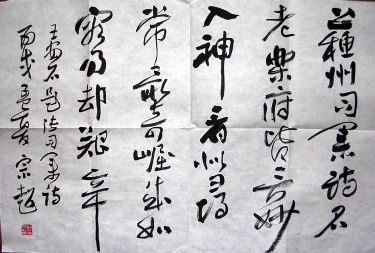 蘇州司業詩名
老樂府皆言妙
入神看似尋
常最奇崛成如
容易却艱辛
王安石題張司業詩
丙戌孟夏宗超